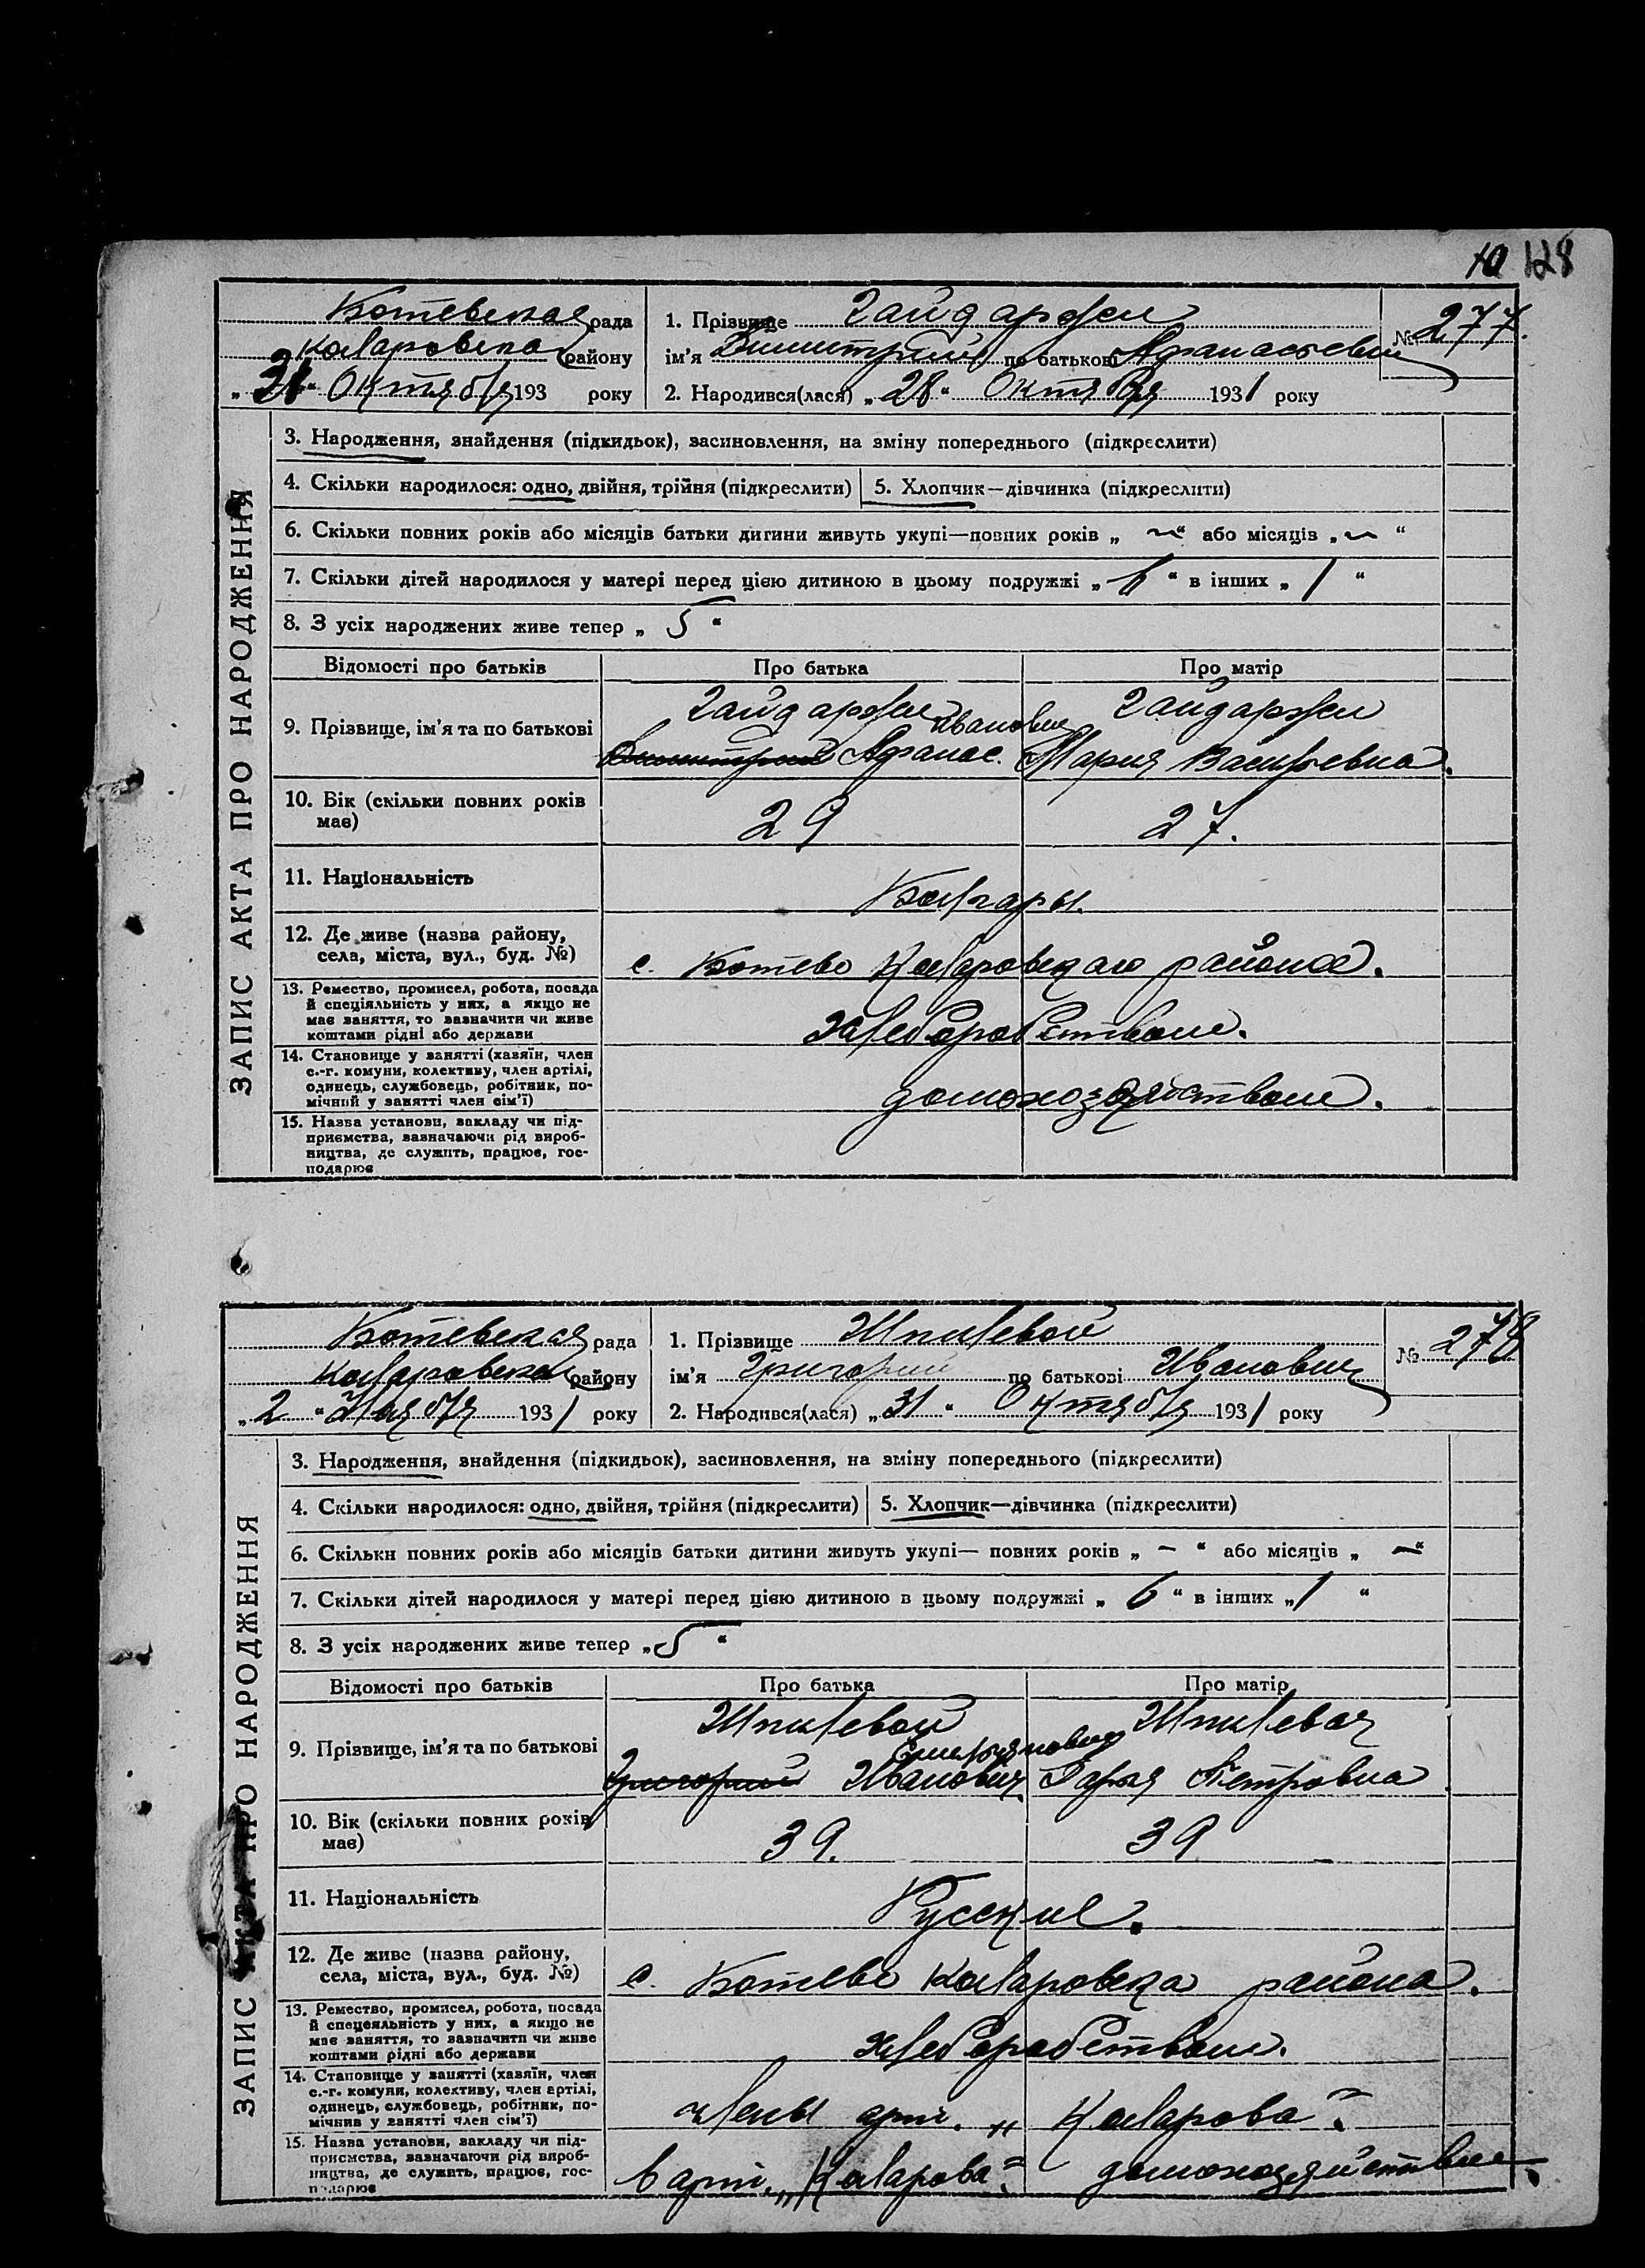 10 128
Ботевская рада
Коларовского району
„31“ Октября 193 року
1. Прізвище Гайдаржи
ім’я Димитрий по батькові Афанасьевич
2. Народився(лася) „28“ Октября 1931 року
№ 277.
ЗАПИС АКТА ПРО НАРОДЖЕННЯ
3. Народження, знайдення (підкидьок), засиновлення, на зміну попереднього (підкреслити)
4. Скільки народилося: одно, двійня, трійня (підкреслити)
5. Хлопчик—дівчинка (підкреслити)
6. Скільки повних років або місяців батьки дитини живуть укупі—повних років „ ~ “ або місяців „ ~ “
7. Скільки дітей народилося у матері перед цією дитиною в цьому подружжі „ 6 “ в інших „ 1 “
8. З усіх народжених живе тепер „ 5 “
Відомості про батьків Про батька Про матір
9. Прізвище, ім’я та по батькові
Гайдаржи Иванович
Димитрий Афанас.
Гайдаржи
Мария Васильевна.
10. Вік (скільки повних років
має)
29 27.
11. Національність
Болгары.
12. Де живе (назва району,
села, міста, вул., буд. №)
с. Ботево Коларовского района.
13. Ремество, промисел, робота, посада
й спеціяльність у них, а якщо не
має заняття, то зазначити чи живе
коштами рідні або держави
Хлеборобством.
14. Становище у занятті (хазяїн, член
с.-г. комуни, колективу, член артілі,
одинець, службовець, робітник, по-
мічний у занятті член сім’ї)
домохозяйством.
15. Назва установи, закладу чи під-
приємства, зазначаючи рід вироб-
ництва, де служить, працює, гос-
подарює
Ботевская рада
Коларовского району
„2“ Ноября 1931 року
1. Прізвище Шпилевой
ім’я Григорий по батькові Иванович
2. Народився(лася) „31“ Октября 1931 року
№ 278
ЗАПИС АКТА ПРО НАРОДЖЕННЯ
3. Народження, знайдення (підкидьок), засиновлення, на зміну попереднього (підкреслити)
4. Скільки народилося: одно, двійня, трійня (підкреслити)
5. Хлопчик—дівчинка (підкреслити)
6. Скільки повних років або місяців батьки дитини живуть укупі— повних років „ – “ або місяців „ – “
7. Скільки дітей народилося у матері перед цією дитиною в цьому подружжі „ 6 “ в інших „ 1 “
8. З усіх народжених живе тепер „ 5 “
Відомості про батьків Про батька Про матір
9. Прізвище, ім’я та по батькові
Шпилевой
Емельянович
Григорий Иванович
Шпилевая
Дарья Петровна
10. Вік (скільки повних років
має)
39. 39
11. Національність
Русские.
12. Де живе (назва району,
села, міста, вул., буд. №)
с. Ботево Коларовска района.
13. Ремество, промисел, робота, посада
й спецеяльність у них, а якщо не
має заняття, то зазначити чи живе
коштами рідні або держави
хлеборобством.
14. Становище у занятті (хазяїн, член
с.-г. комуни, колективу, член артілі,
одинець, службовець, робітник, по-
мічний у занятті член сім’ї)
члены арт. „Коларова“.
15. Назва установи, закладу чи під-
приємства, зазначаючи рід вироб-
ництва, де служить, працює, гос-
подарює
в арт. „Коларова“. домохозяйством.